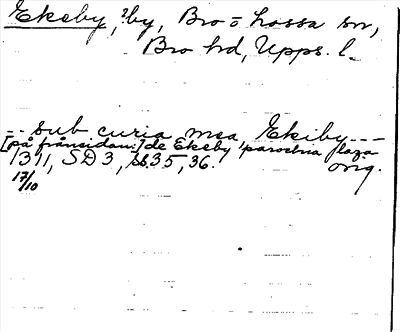 Ekeby, ?by, Bro o Lossa sn,
Bro hd, Upps. l.
-- sub curia mea Ekiby ---
[på frånsidan:] de Ekeby parochia
1311, SD 3, s. 35, 36. orig.
17/10